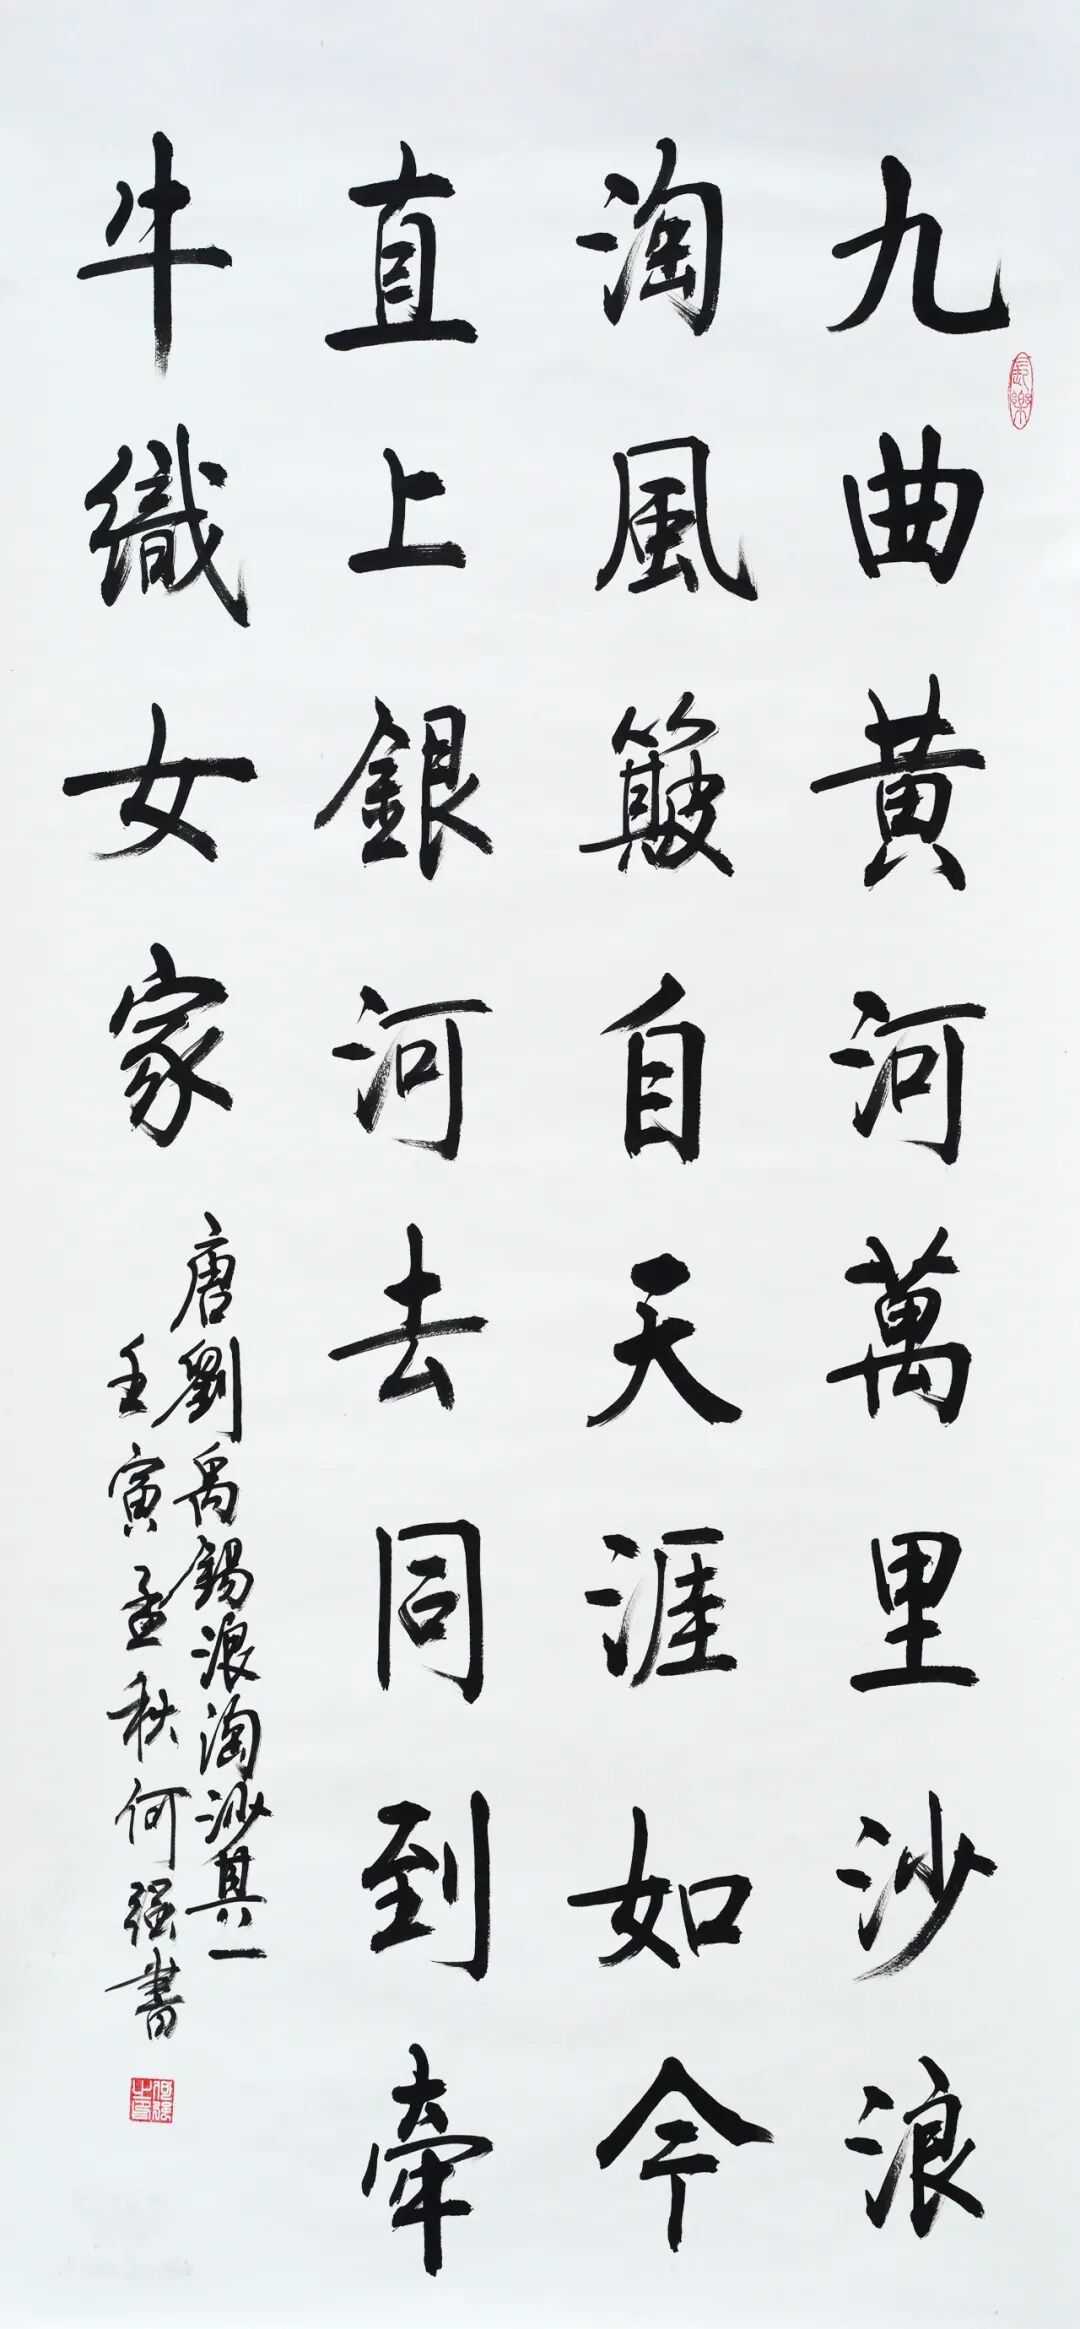 九曲黄河萬里沙浪
淘風簸自天涯如今
直上銀河去同到牽
牛織女家
唐劉禹錫浪淘沙其一
壬寅孟秋何强書
何强之印